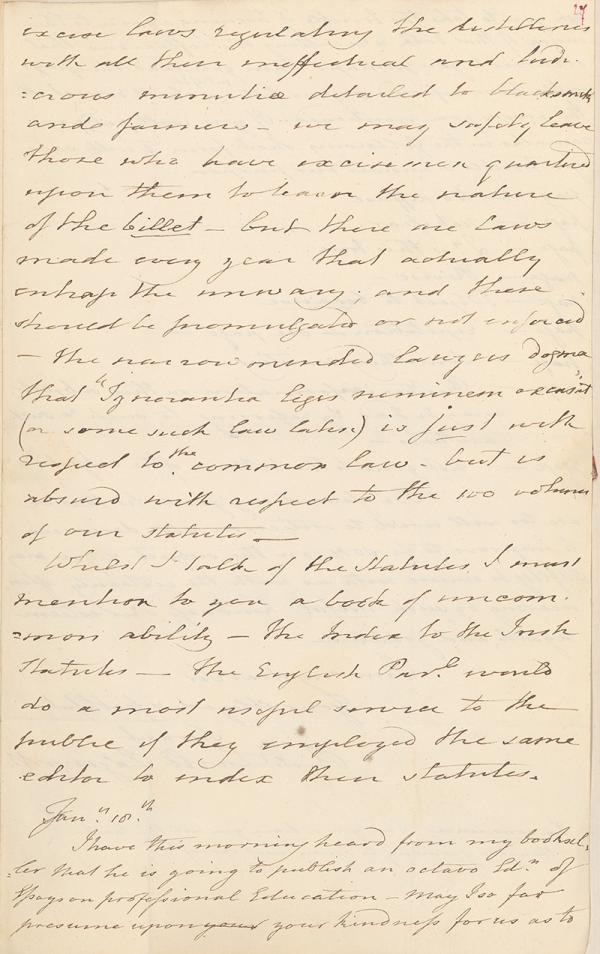 27
excise laws regulating the distilleries
with all their ineffectual and ludi-
=crous minutiæ detailed to blacksmiths
and farmers – we may safely leave
those who have excisemen quartered
upon them to learn the nature
of the billet – but there are laws
made every year that actually
entrap the unwary; and these
should be promulgated or not enforced
– the narrow minded lawyers dogma
that "Ignorantia legis neminem excusat"
(or some such law latin) is just with
respect to the common law – but is
absurd with respect to the 100 volumes
of our statutes –
Whilst I talk of the Statutes I must
mention to you a book of uncom-
=mon ability – the Index to the Irish
Statutes – the English Parlt would
do a most useful service to the
public if they employed the same
editor to index their statutes.
Jany. 18.th
I have this morning heard from my booksel-
=ler that he is going to publish an octavo Edn of
Essays on professional Education – May I so far
presume upon your your kindness for us as to